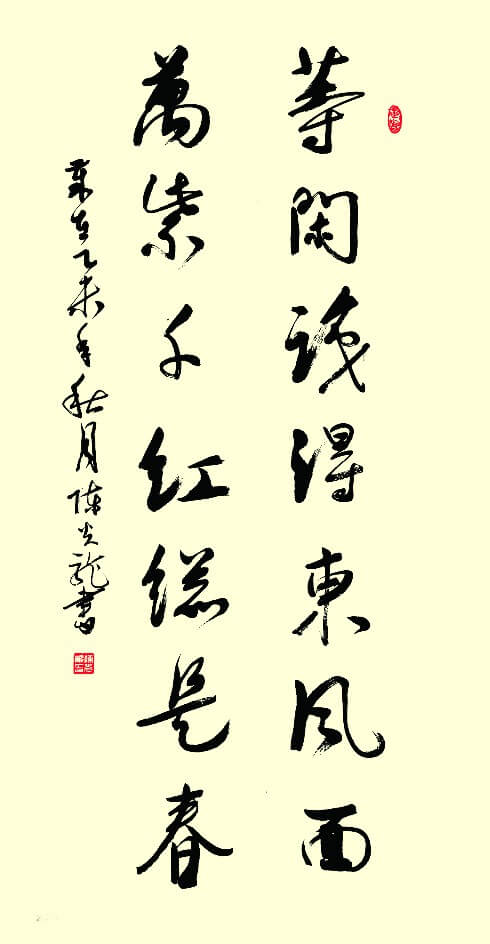 等閑識得東風面
萬紫千紅總是春
歲在乙未年秋月陳炎龍書